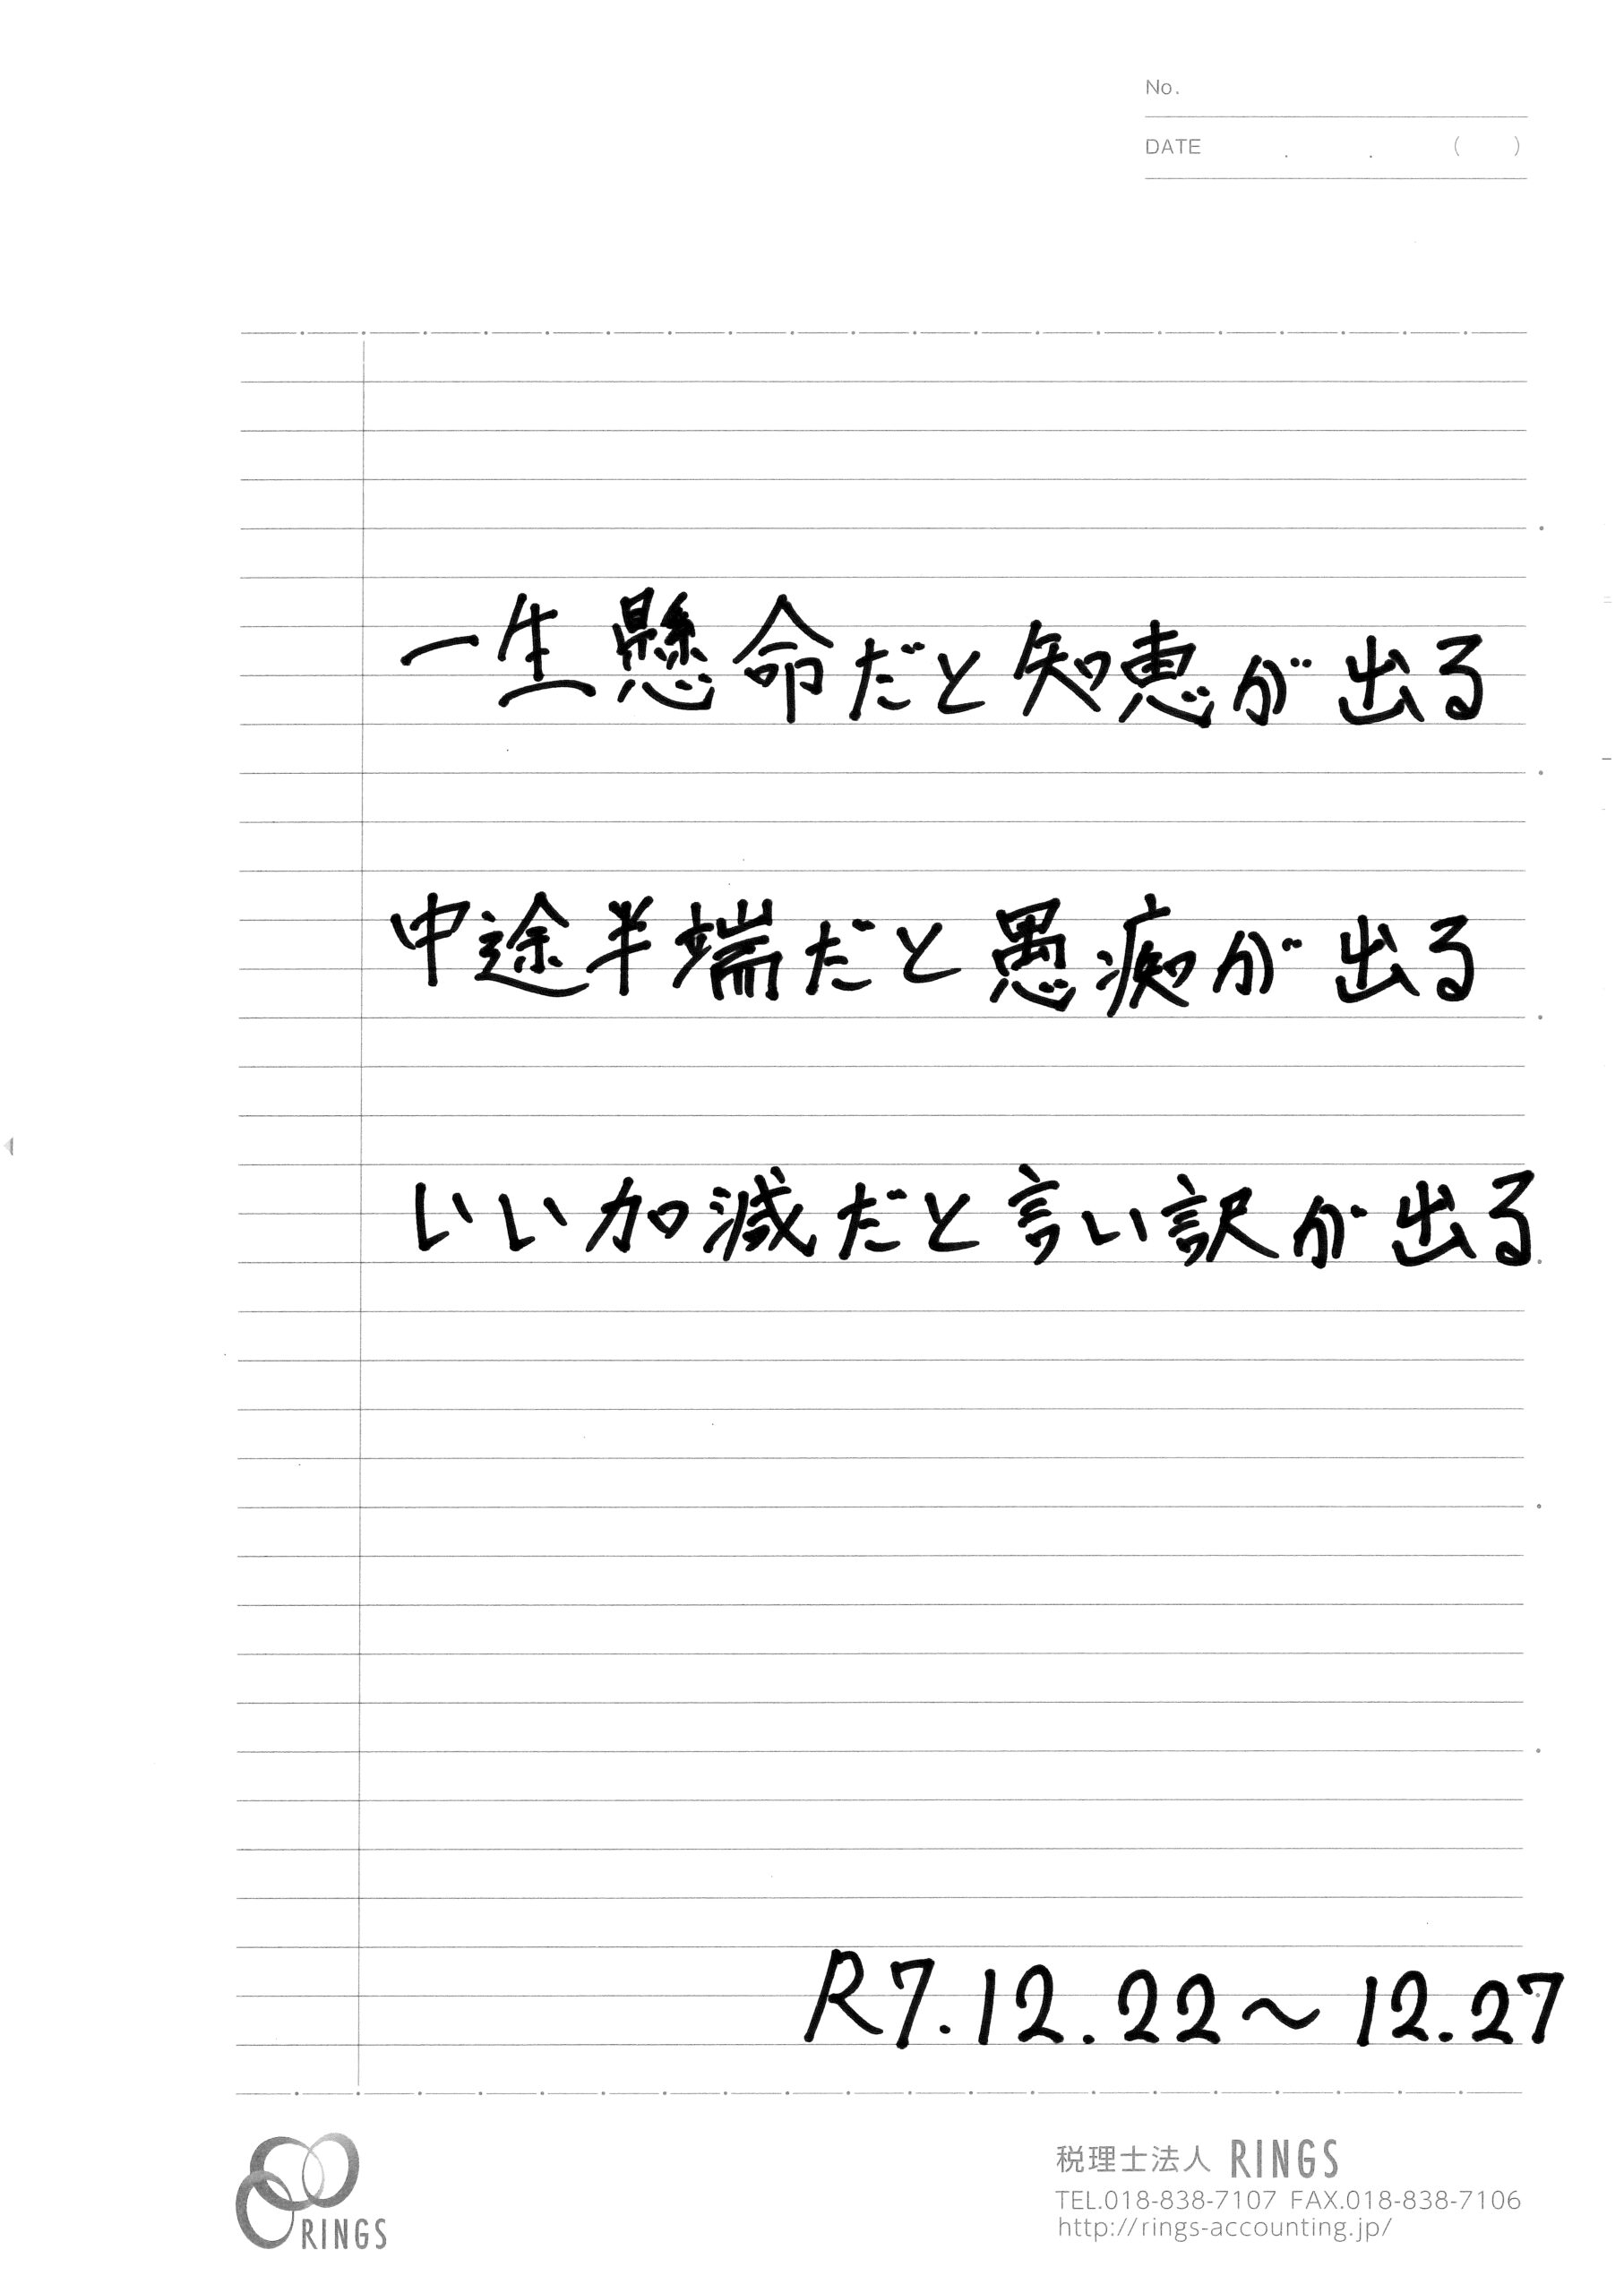 No.
DATE . . ( )
一生懸命だと知恵が出る
中途半端だと愚痴が出る
いい加減だと言い訳が出る
R7.12.22～12.27
RINGS
税理士法人 RINGS
TEL.018-838-7107 FAX.018-838-7106
http://rings-accounting.jp/